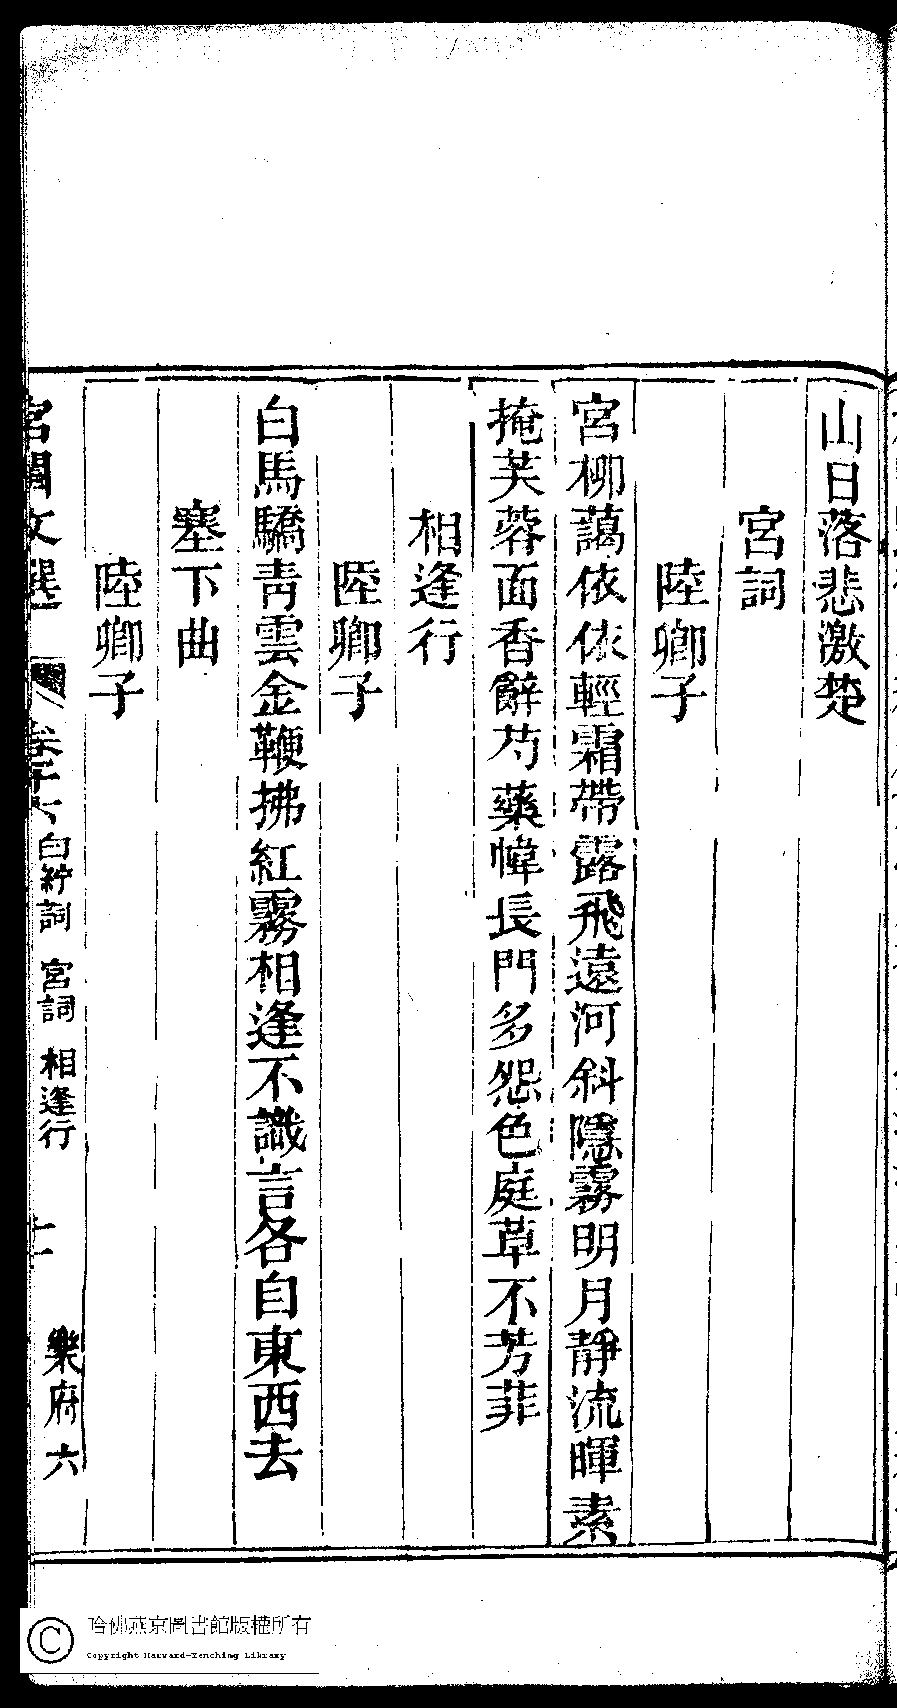 山日落悲激楚
宮詞
陸卿子
宮柳藹依依輕霜帶露飛遠河斜隱霧明月靜流暉素
掩芙蓉面香辭芍藥幃長門多怨色庭草不芳菲
相逢行
陸卿子
白馬驕青雲金鞭拂紅霧相逢不識言各自東西去
塞下曲
陸卿子
宮閨文選 卷二十六 白紵詞 宮詞 相逢行 樂府六
哈佛燕京圖書館版權所有
Copyright Harvard-Yenching Library